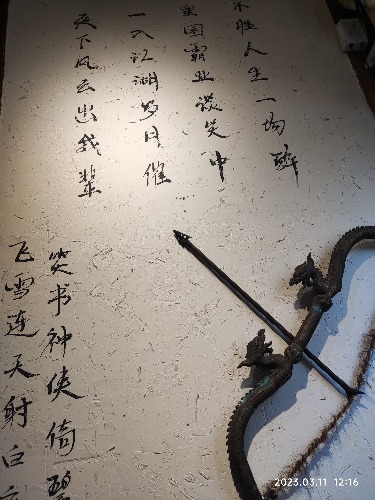 天下风云出我辈
一入江湖岁月催
皇图霸业谈笑中
不胜人生一场醉
飞雪连天射白
笑书神侠倚碧
2023.03.11 12:16